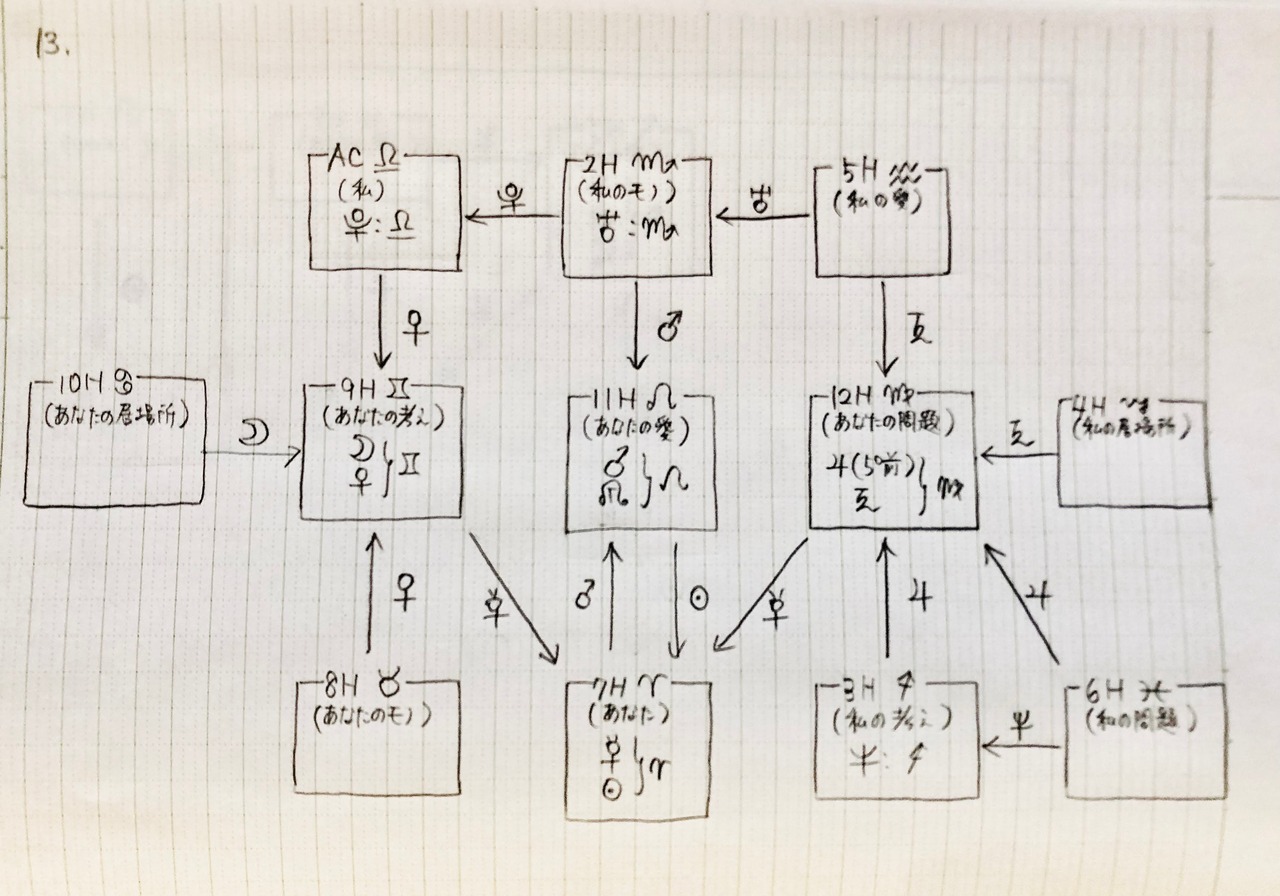 13.
AC ♎
(私)
♇:♎
♇
2H ♏
(私のモノ)
♅:♏
♅
5H ♒
(私の愛)
♀
♂
♄
10H ♋
(あなたの居場所)
☽
9H ♊
(あなたの考え)
☽
♀
}♊
11H ♌
(あなたの愛)
♂
☊
}♌
12H ♍
(あなたの問題)
♃(5°前)
♄
}♍
♄
4H ♑
(私の居場所)
♀
☿
♂
☉
☿
♃
♃
8H ♉
(あなたのモノ)
7H ♈
(あなた)
☿
☉
}♈
3H ♐
(私の考え)
♆:♐
♆
6H ♓
(私の問題)